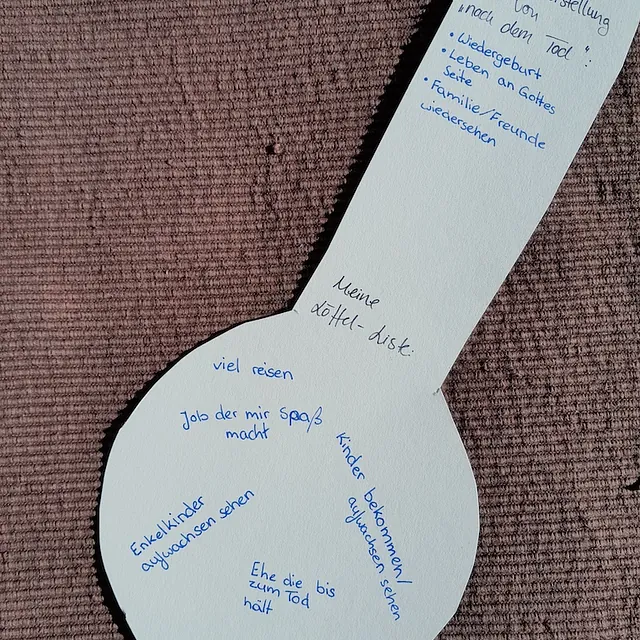 von
"nach dem Tod":
• Wiedergeburt
• Leben an Gottes
Seite
• Familie/Freunde
wiedersehen
Meine
Löffel-Liste:
viel reisen
Job der mir Spaß
macht
Kinder bekommen/
aufwachsen sehen
Enkelkinder
aufwachsen sehen
Ehe die bis
zum Tod
hält